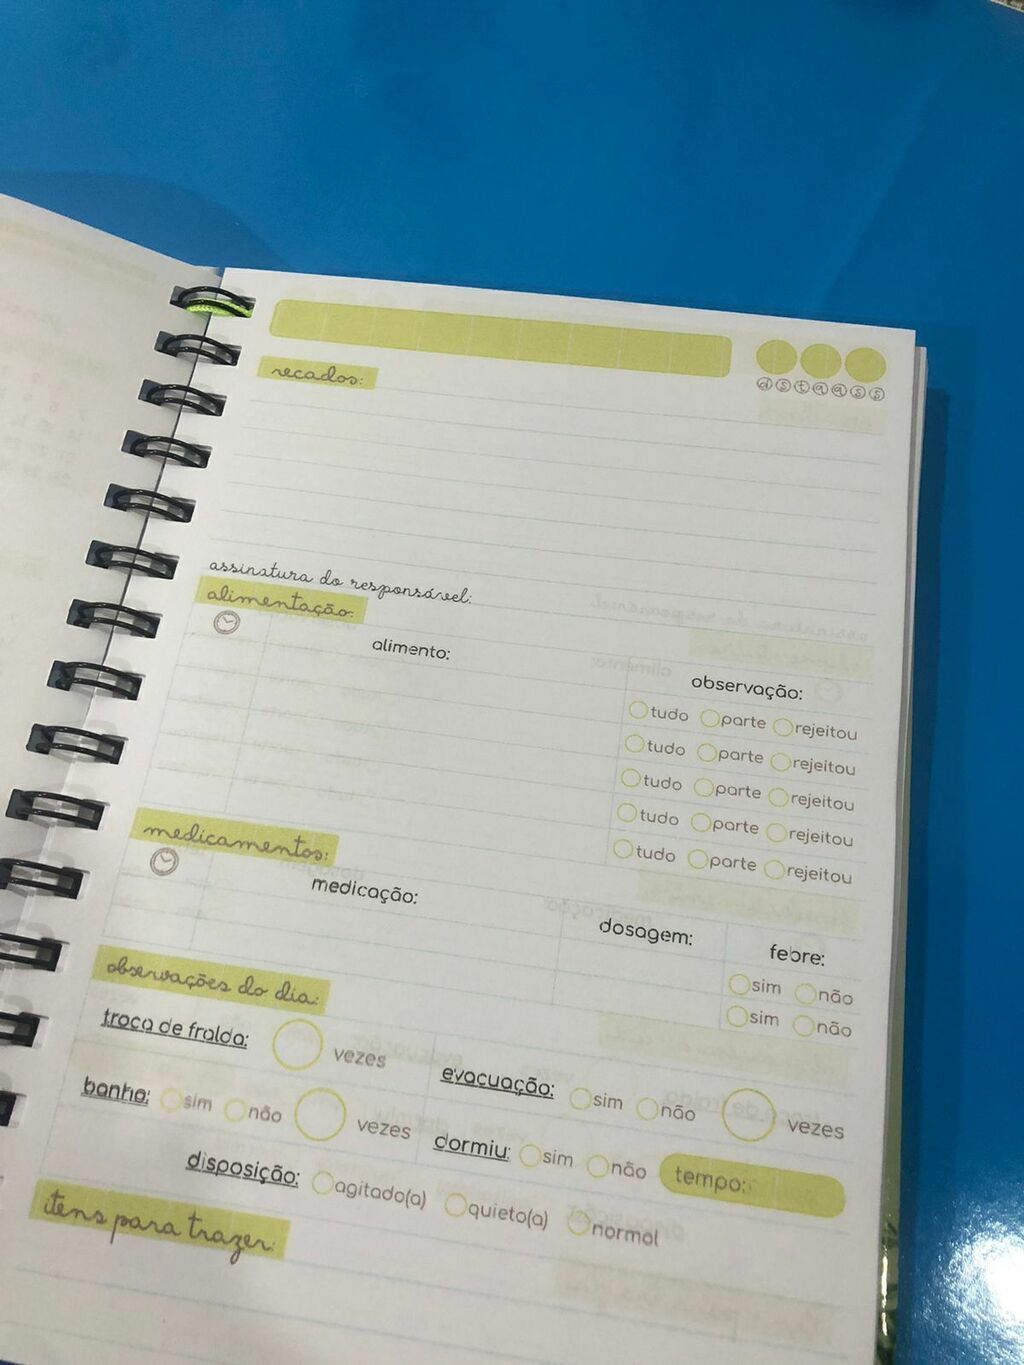 d s t q q s s
recados:
assinatura do responsável:
alimentação:
alimento:
observação:
tudo parte rejeitou
tudo parte rejeitou
tudo parte rejeitou
tudo parte rejeitou
tudo parte rejeitou
medicamentos:
medicação:
dosagem:
febre:
sim não
sim não
observações do dia:
troca de fralda: vezes
evacuação: sim não vezes
banho: sim não vezes
dormiu: sim não tempo:
disposição: agitado(a) quieto(a) normal
itens para trazer: